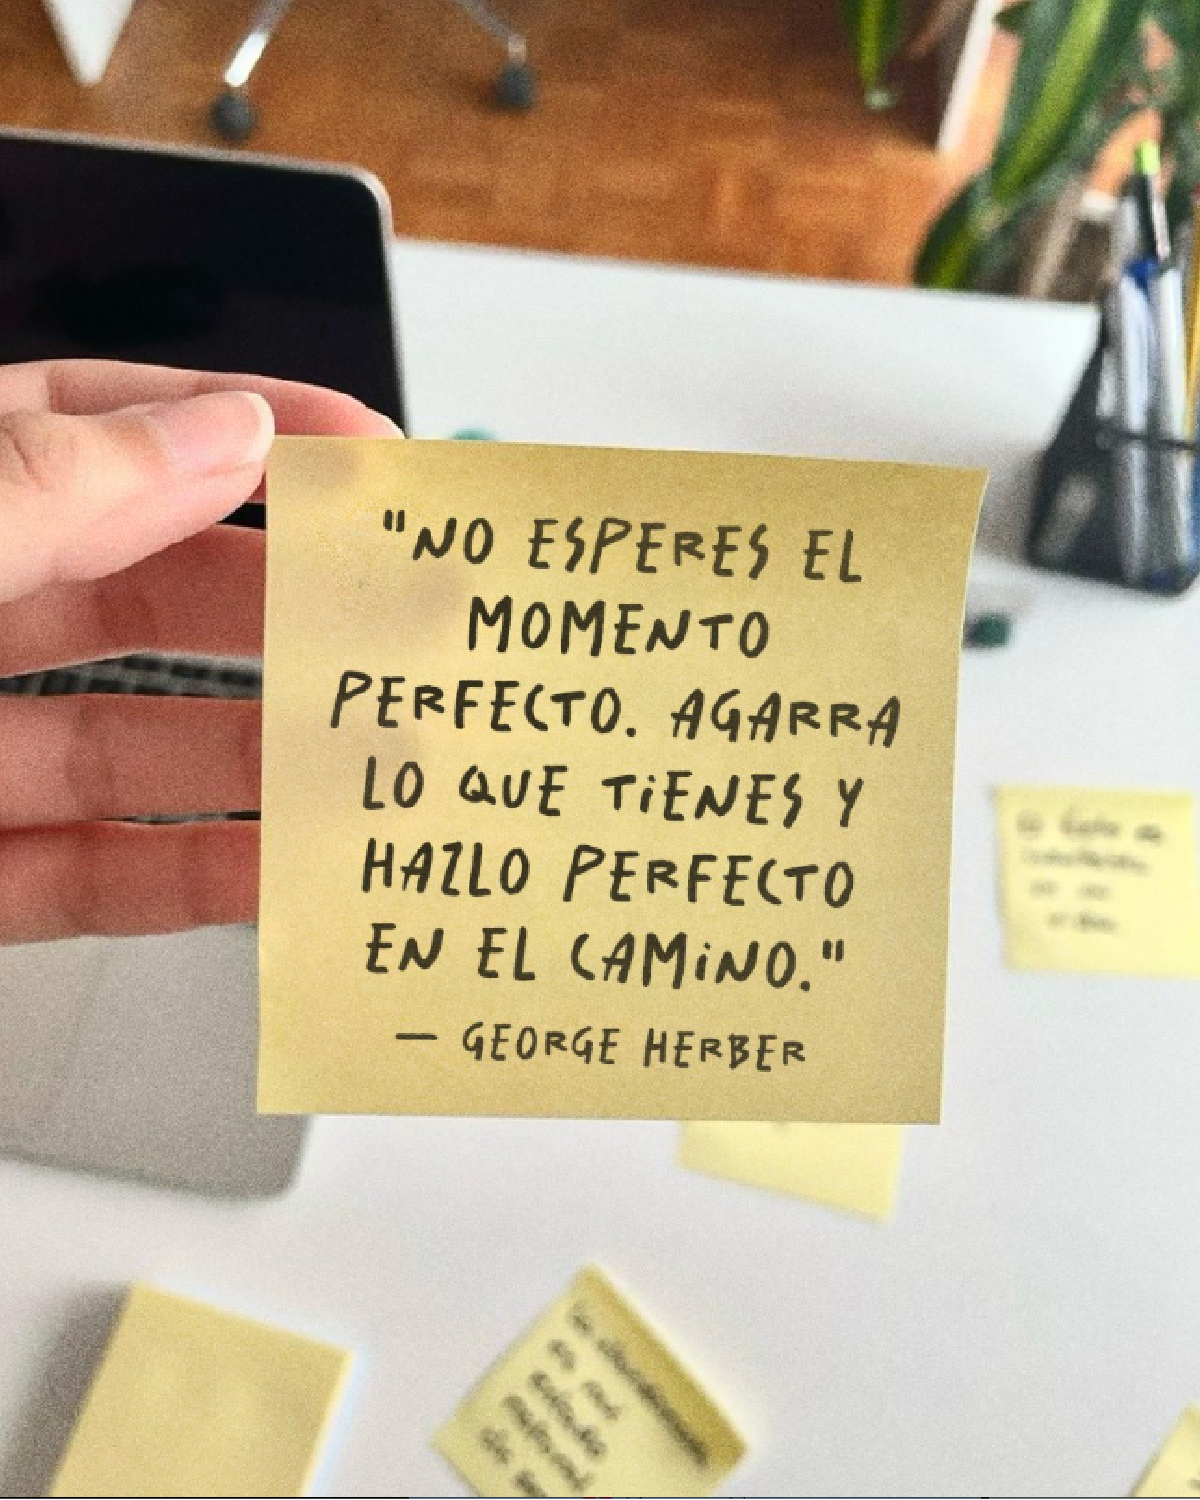 "NO ESPERES EL
MOMENTO
PERFECTO. AGARRA
LO QUE TIENES Y
HAZLO PERFECTO
EN EL CAMINO."
— GEORGE HERBER